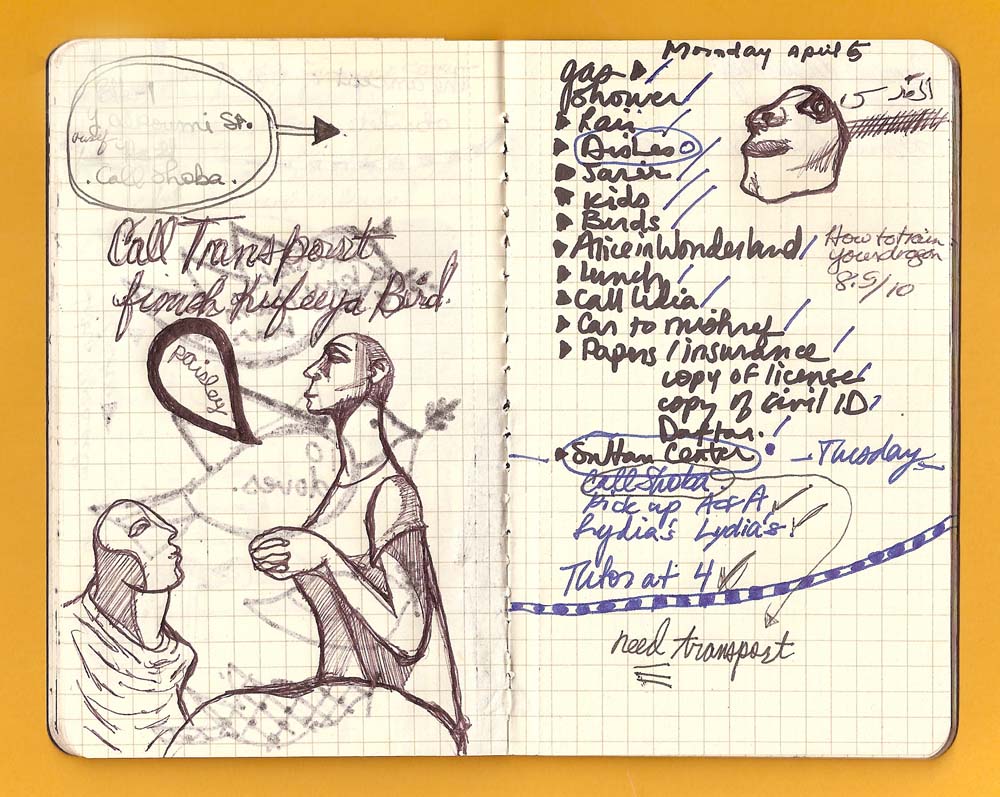 Call Shoba.
Call Transporst
finish Kufeeya Bird.
paisley
Monday April 5
gap
Shower
Rain
Dishes
Sarir
Kids
Birds
Alice in Wonderland
Lunch
Call Lidia
Car to mishref
Papers / insurance
copy of license
copy of Civil ID
Daftar.
How to train
your dragon
8.5/10
Sultan Center
Tuesday
Call Shoba
Pick up A&A
Lydia's Lydia's!
Tutor at 4
need transport